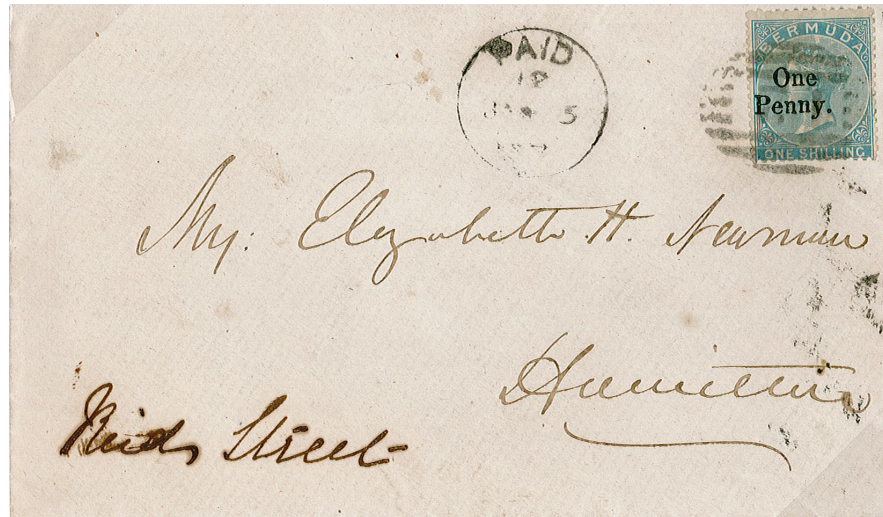 PAID
BERMUDA
One
Penny.
ONE SHILLING.
Elizabeth H. Newman
Hamilton
Reids Street